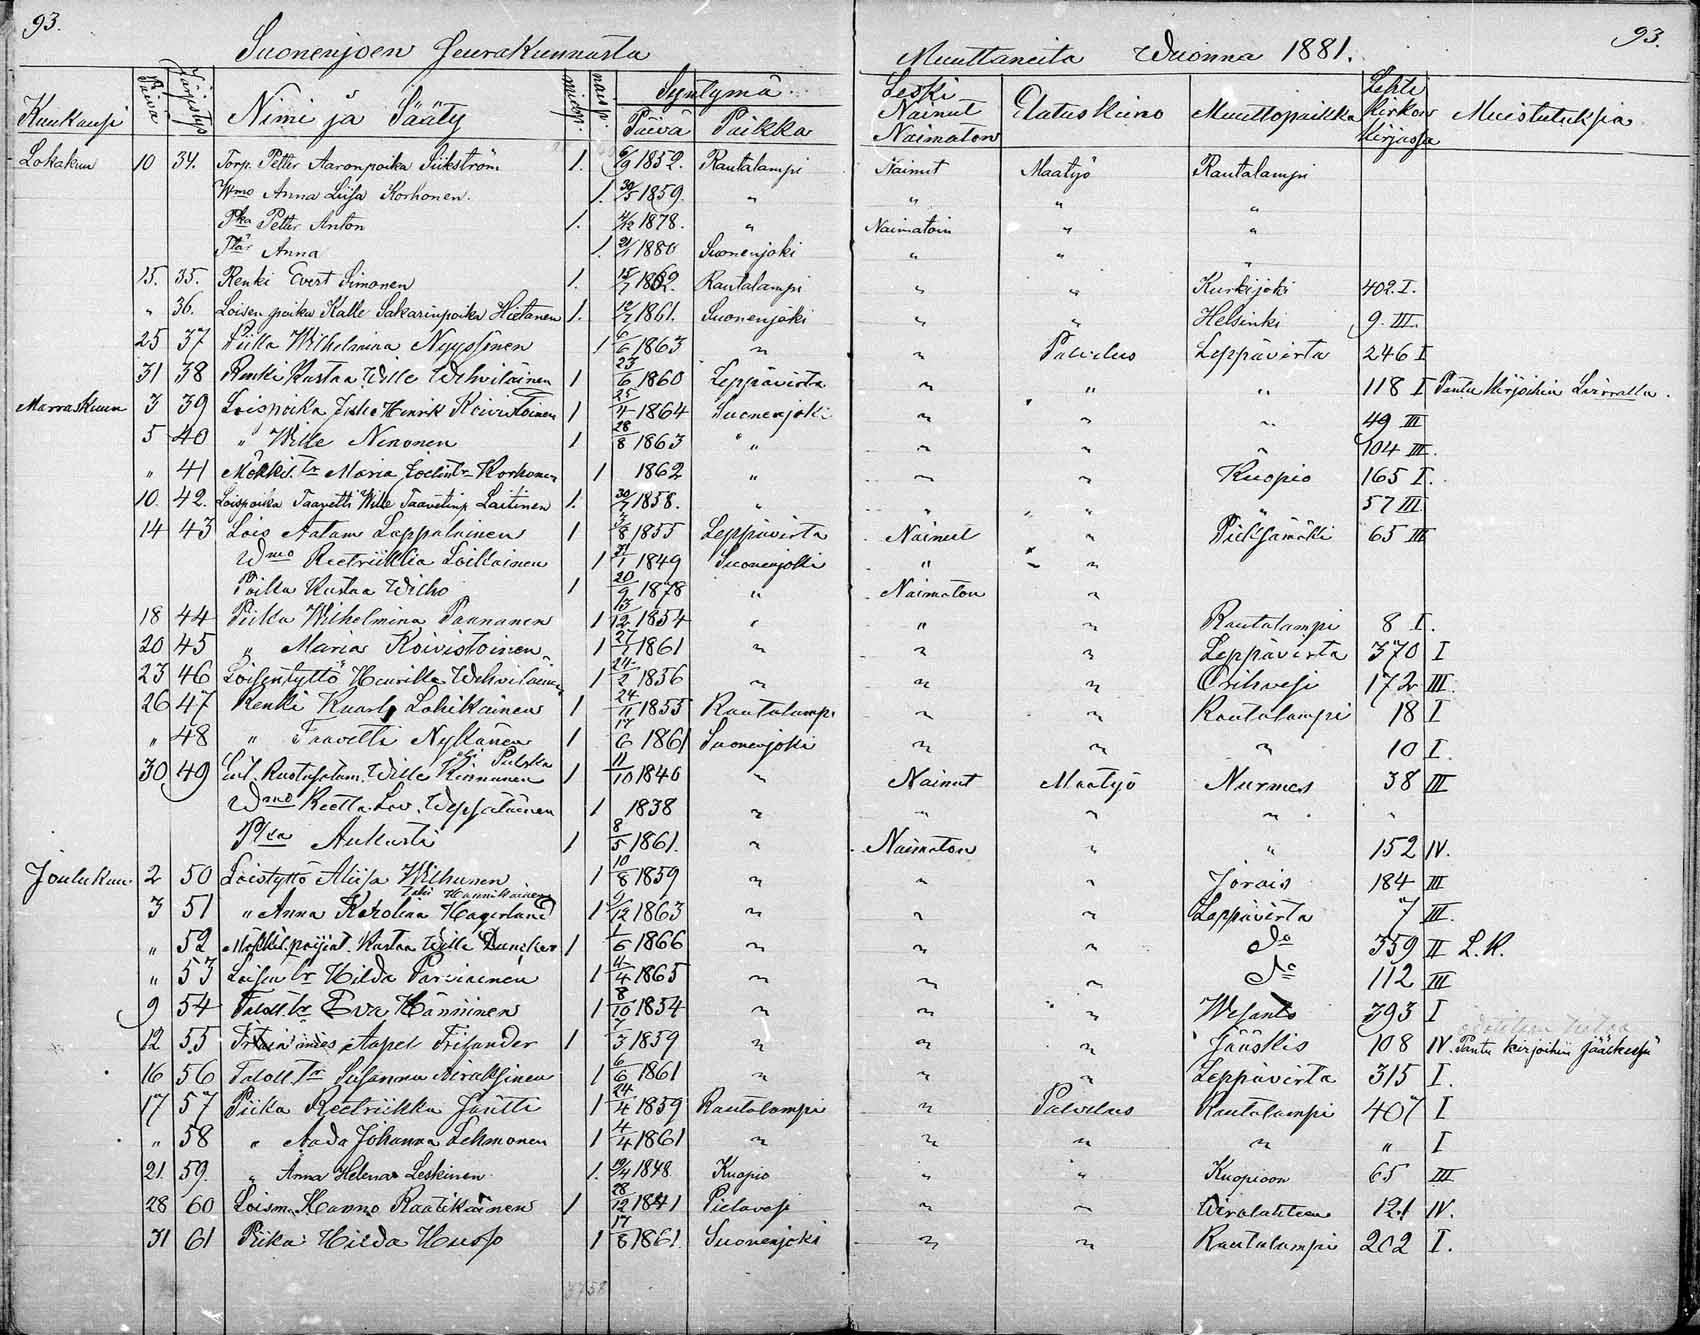 93. 93.
Suonenjoen Seurakunnasta Muuttaneita Wuonna 1881.
Kuukausi Päivä Järjestys Nimi ja Sääty miesp. naisp. Syntymä Päivä Paikka Leski Nainut Naimaton Elatuskeino Muuttopaikka Lehti kirkon kirjassa Muistutuksia
Lokakuu 10 34. Torp. Petter Aaronpoika Siikström 1. 6/9 1852. Rautalampi Nainut Maatyö Rautalampi
Wmo Anna Liisa Korhonen. 1. 30/5 1859. " " " "
Pka Petter Anton 1. 4/12 1878. " Naimatoin " "
Ttär Anna 1. 21/1 1880 Suonenjoki " " "
15. 35. Renki Evert Simonen 1. 15/7 1862. Rautalampi " " Kurkijoki 402. I.
" 36. Loisen poika Kalle Sakarinpoika Hietanen 1. 12/7 1861. Suonenjoki " " Helsinki 9. III.
25 37 Piika Wilhelmina Nyyssönen 1 6/6 1863 " " Palvelus Leppävirta 246 I
31 38 Renki Kustaa Wille Wehviläinen 1 23/6 1860 Leppävirta " " " 118 I Pantu kirjoihin
Marraskuu 3 39 Loispoika Juho Henrik Koivistoinen 1 25/11 1864 Suonenjoki " " " 49 III
5 40 " Wille Ninonen 1 28/8 1863 " " " " 104 III.
" 41 Mökkil. tr Maria Korhonen 1 1862 " " " Kuopio 165 I.
10. 42. Loispoika Taavetti Wille Taavetinp. Laitinen 1. 30/7 1858. " " " " 57 III
14 43 Lois Aatam Lappalainen 1 3/8 1855 Leppävirta Nainut " Pieksämäki 65 III
Wmo Reetriikka Loikkainen 1 31/1 1849 Suonenjoki " "
Poika Kustaa Wilho 1 20/9 1878 " Naimaton "
18 44 Piika Wilhelmina Paananen 1 13/12 1854 " " " Rautalampi 8 I.
20 45 " Maria Koivistoinen 1 27/7 1861 " " " Leppävirta 370 I
23 46 Loisentyttö Henrikka Wehviläinen 1 24/2 1856 " " " Orihvesi 172 III.
26 47 Renki Kaarle Lohikainen 1 24/11 1855 Rautalampi " " Rautalampi 18 I
" 48 " Taavetti Nykänen 1 17/6 1861 Suonenjoki " " " 10 I.
30 49 Ent. Ruotusotam. Wille Kinnunen eli Pulska 1 11/10 1840 " Nainut Maatyö Nurmes 38 III
Wmo Reetta Lov. Wepsäläinen 1 1838 " " " " "
Pka Aukusti 1 8/5 1861. " Naimaton " " 152 IV.
Joulukuu 2 50 Loistyttö Aliisa Wilhunen 1 10/8 1859 " " " Jorois 184 III
3 51 " Anna Karolina Hagerlund 1 9/12 1863 " " " Leppävirta 7 III.
" 52 Mökkil. Kustaa Wille Duncker 1 1/6 1866 " " " Do 359 II L.K.
" 53 Loisen tr Hilda Parviainen 1 4/4 1865 " " " Do 112 III
9 54 Taloll. tr Eva Hänninen 1 8/10 1854 " " " Wesanto 393 I
12 55 Aapel Frisander 1 7/3 1859 " " " Jääskis 108 IV. Pantu kirjoihin Jääskessä
16 56 Taloll. tr Susanna Airaksinen 1 6/6 1861 " " " Leppävirta 315 I.
17 57 Piika Reetriikka Jäntti 1 24/4 1859 Rautalampi " Palvelus Rautalampi 407 I
" 58 " Aada Johanna Lehmonen 1 4/4 1861 " " " " " I
21. 59. " Anna Helena Leskinen 1. 19/4 1848. Kuopio " " Kuopioon 65 III
28 60 Loism. Hanno Raatikainen 1 28/12 1841 Pielavesi " " Wirolahteen 121 IV.
31 61 Piika Hilda Husso 1 17/8 1861. Suonenjoki " " Rautalampi 202 I.